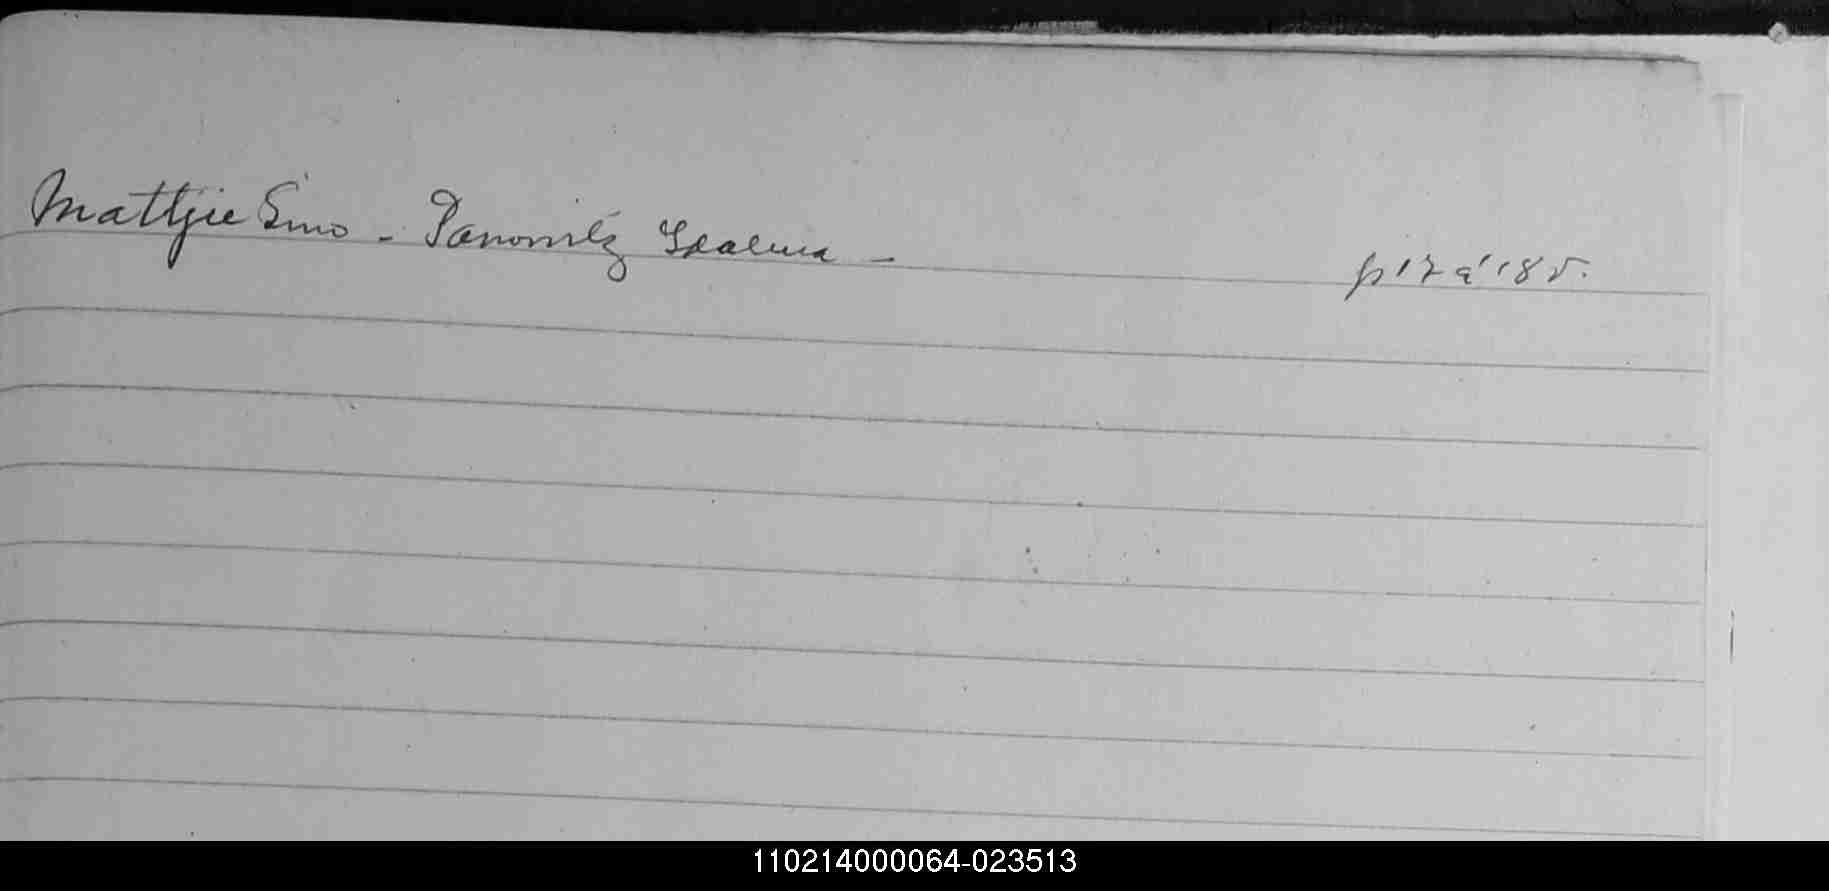 Mattjie Smo - Panowitz Idalina - p 17 a' 18 v.
110214000064-023513